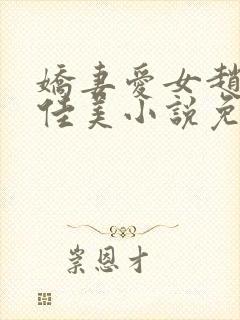 嬌妻愛女趙
佳美小說免
崇恩才